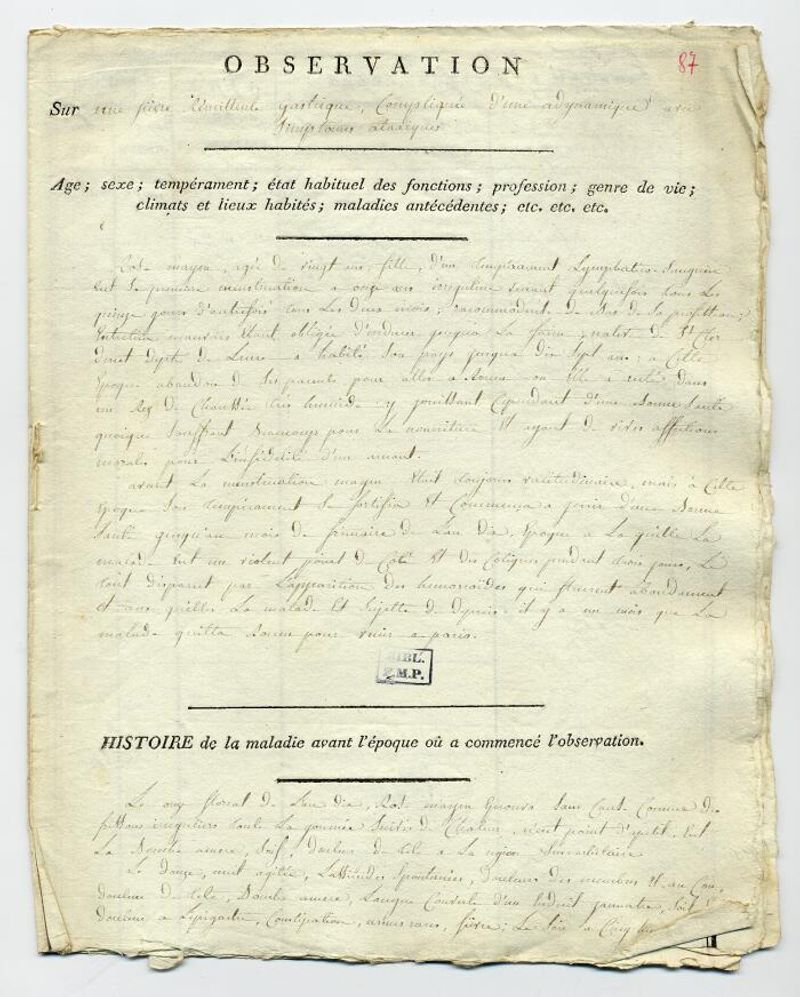 OBSERVATION
87
Sur une fièvre Rémittente gastrique, Compliquée d'une adynamique avec
Simptomes ataxiques
Age; sexe; tempérament; état habituel des fonctions; profession; genre de vie;
climats et lieux habités; maladies antécédentes; etc. etc. etc.
Rose mayen, agée de vingt ans, fille, d'un tempérament Lymphatico-Sanguin
Eut Sa première menstruation a onze ans irregulière venant quelquefois tous les
quinze jours d'autrefois tous Les deux mois; racommodeuse de Bas de Sa profession;
obligée d'endurer jusqu'a La faim, native de St
dept de Leure a habité Son pays jusqu'a dix Sept ans; a Cette
Epoque abandonna Ses parents pour aller a Rouen ou Elle a resté dans
un Rez de Chaussée très humide y jouissant Cependant d'une Bonne Santé
quoique Souffrant Beaucoup pour La nourriture Et ayant de vives affections
morales pour L'infidélité d'un amant.
avant La menstruation mayen Etait toujours valetudinaire, mais a Cette
Epoque Son tempérament Se fortifia Et Commença a jouir d'une Bonne
Santé jusqu'au mois de frimaire de L'an dix. Epoque a La quelle La
malade Eut un violent point de Coté Et des Coliques pendant trois jours, Le
tout disparut par L'apparition des hemorroïdes qui fluerent abondamment
Et aux quelles La malade Est Sujette depuis. il y a un mois que La
malade quitta Rouen pour venir a paris.
BIBL.
F.M.P.
HISTOIRE de la maladie avant l'époque où a commencé l'observation.
Le onze floreal de L'an dix, Rose mayen Eprouva Sans Cause Connue des
frissons irreguliers toute La journée Suivis de Chaleur, n'eut point d'apetit, Eut
La Bouche amere, Soif, douleur de tete a La region Surciliaire
Le Douze, nuit agitée, Lassitudes Spontanées, Douleurs des membres Et au Cou,
douleur de tete, Bouche amere, Langue Couverte d'un Enduit jaunatre, Soif
douleur a L'epigastre, Constipation, urines rares, fièvre; Le Soir a Cinq